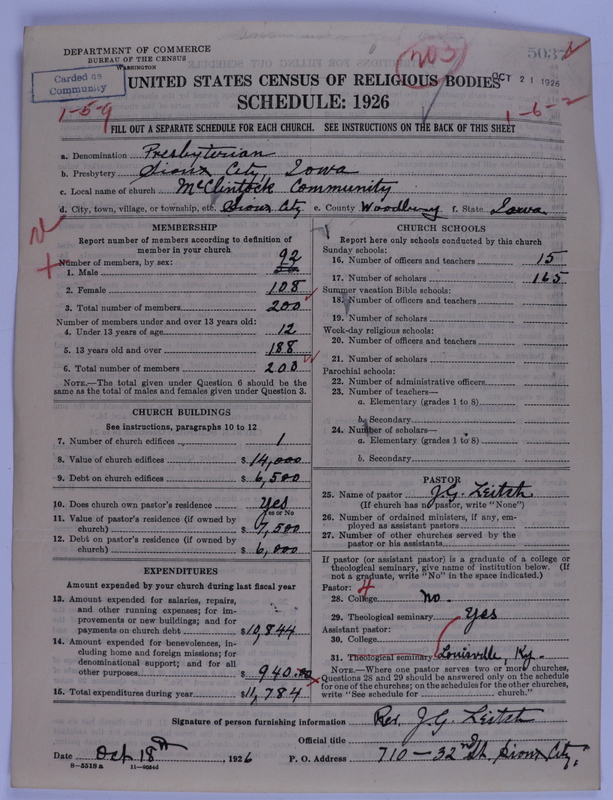 DEPARTMENT OF COMMERCE
BUREAU OF THE CENSUS
WASHINGTON
Carded as
Community
1-5-9
703
5037
OCT 21 1926
1-6-2
UNITED STATES CENSUS OF RELIGIOUS BODIES
SCHEDULE: 1926
FILL OUT A SEPARATE SCHEDULE FOR EACH CHURCH. SEE INSTRUCTIONS ON THE BACK OF THIS SHEET
a. Denomination Presbyterian
b. Presbytery Sioux City, Iowa
c. Local name of church McClintock Community
d. City, town, village, or township, etc. Sioux City e. County Woodbury f. State Iowa
MEMBERSHIP
Report number of members according to definition of
member in your church
Number of members, by sex:
1. Male 92
2. Female 108
3. Total number of members 200
Number of members under and over 13 years old:
4. Under 13 years of age 12
5. 13 years old and over 188
6. Total number of members 200
NOTE.—The total given under Question 6 should be the
same as the total of males and females given under Question 3.
CHURCH BUILDINGS
See instructions, paragraphs 10 to 12
7. Number of church edifices 1
8. Value of church edifices $ 14,000
9. Debt on church edifices $ 6,500
10. Does church own pastor's residence Yes
Yes or No
11. Value of pastor's residence (if owned by
church) $ 7,500
12. Debt on pastor's residence (if owned by
church) $ 6,000
EXPENDITURES
Amount expended by your church during last fiscal year
13. Amount expended for salaries, repairs,
and other running expenses; for im-
provements or new buildings; and for
payments on church debt $ 10,844
14. Amount expended for benevolences, in-
cluding home and foreign missions; for
denominational support; and for all
other purposes $ 940.00
15. Total expenditures during year $ 11,784
CHURCH SCHOOLS
Report here only schools conducted by this church
Sunday schools:
16. Number of officers and teachers 15
17. Number of scholars 165
Summer vacation Bible schools:
18. Number of officers and teachers
19. Number of scholars
Week-day religious schools:
20. Number of officers and teachers
21. Number of scholars
Parochial schools:
22. Number of administrative officers
23. Number of teachers—
a. Elementary (grades 1 to 8)
b. Secondary
24. Number of scholars—
a. Elementary (grades 1 to 8)
b. Secondary
PASTOR
25. Name of pastor J.G. Leitch
(If church has no pastor, write "None")
26. Number of ordained ministers, if any, em-
ployed as assistant pastors
27. Number of other churches served by the
pastor or his assistants
If pastor (or assistant pastor) is a graduate of a college or
theological seminary, give name of institution below. (If
not a graduate, write "No" in the space indicated.)
Pastor: 4
28. College no.
29. Theological seminary Yes
Assistant pastor:
30. College
31. Theological seminary Louisville Ky.
NOTE.—Where one pastor serves two or more churches,
Questions 28 and 29 should be answered only on the schedule
for one of the churches; on the schedules for the other churches,
write "See schedule for church."
Signature of person furnishing information Rev. J.G. Leitch
Official title
Date Oct 18th, 1926 P. O. Address 710—32nd St. Sioux City,
8-5518 a 11-9554d